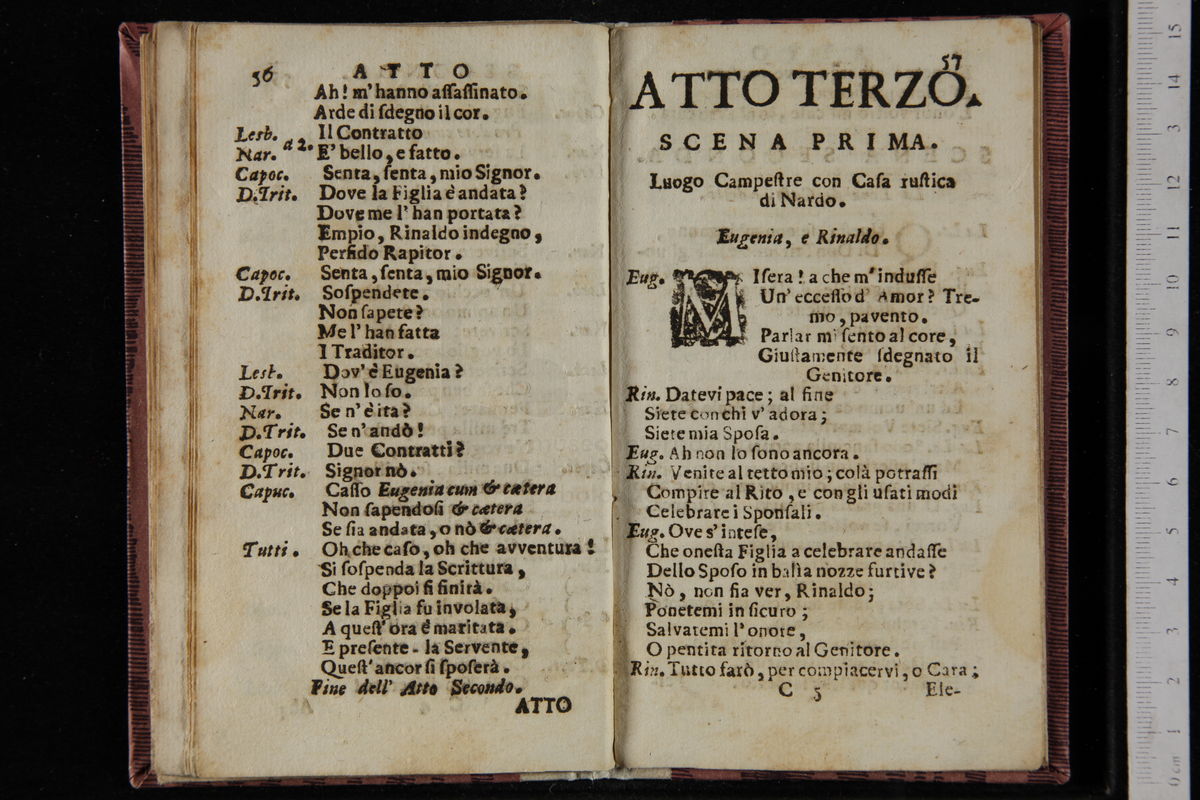 56 ATTO
Ah! m'hanno aſſaſſinato.
Arde di ſdegno il cor.
Lesb. a 2. Il Contratto
Nar. E' bello, e fatto.
Capoc. Senta, ſenta, mio Signor.
D.Trit. Dove la Figlia è andata?
Dove me l' han portata?
Empio, Rinaldo indegno,
Perfido Rapitor.
Capoc. Senta, ſenta, mio Signor.
D.Trit. Soſpendete.
Non ſapete?
Me l' han fatta
I Traditor.
Lesb. Dov' è Eugenia?
D.Trit. Non lo ſo.
Nar. Se n' è ita?
D.Trit. Se n' andò!
Capoc. Due Contratti?
D.Trit. Signor nò.
Capuc. Caſſo Eugenia cum & cætera
Non ſapendoſi & cætera
Se ſia andata, o nò & cætera.
Tutti. Oh che caſo, oh che avventura!
Si ſoſpenda la Scrittura,
Che doppoi ſi finirà.
Se la Figlia fu involata,
A queſt' ora è maritata.
E preſente - la Servente,
Queſt' ancor ſi ſpoſerà.
Fine dell' Atto Secondo.
ATTO
57
ATTO TERZO.
SCENA PRIMA.
Luogo Campeſtre con Caſa ruſtica
di Nardo.
Eugenia, e Rinaldo.
Eug. MIſera! a che m' induſſe
Un' ecceſſo d' Amor? Tre-
mo, pavento.
Parlar mi ſento al core,
Giuſtamente ſdegnato il
Genitore.
Rin. Datevi pace; al fine
Siete con chi v' adora;
Siete mia Spoſa.
Eug. Ah non lo ſono ancora.
Rin. Venite al tetto mio; colà potraſſi
Compire al Rito, e con gli uſati modi
Celebrare i Sponſali.
Eug. Ove s' inteſe,
Che oneſta Figlia a celebrare andaſſe
Dello Spoſo in balìa nozze furtive?
Nò, non fia ver, Rinaldo;
Ponetemi in ſicuro;
Salvatemi l' onore,
O pentita ritorno al Genitore.
Rin. Tutto farò, per compiacervi, o Cara;
C 5 Ele-